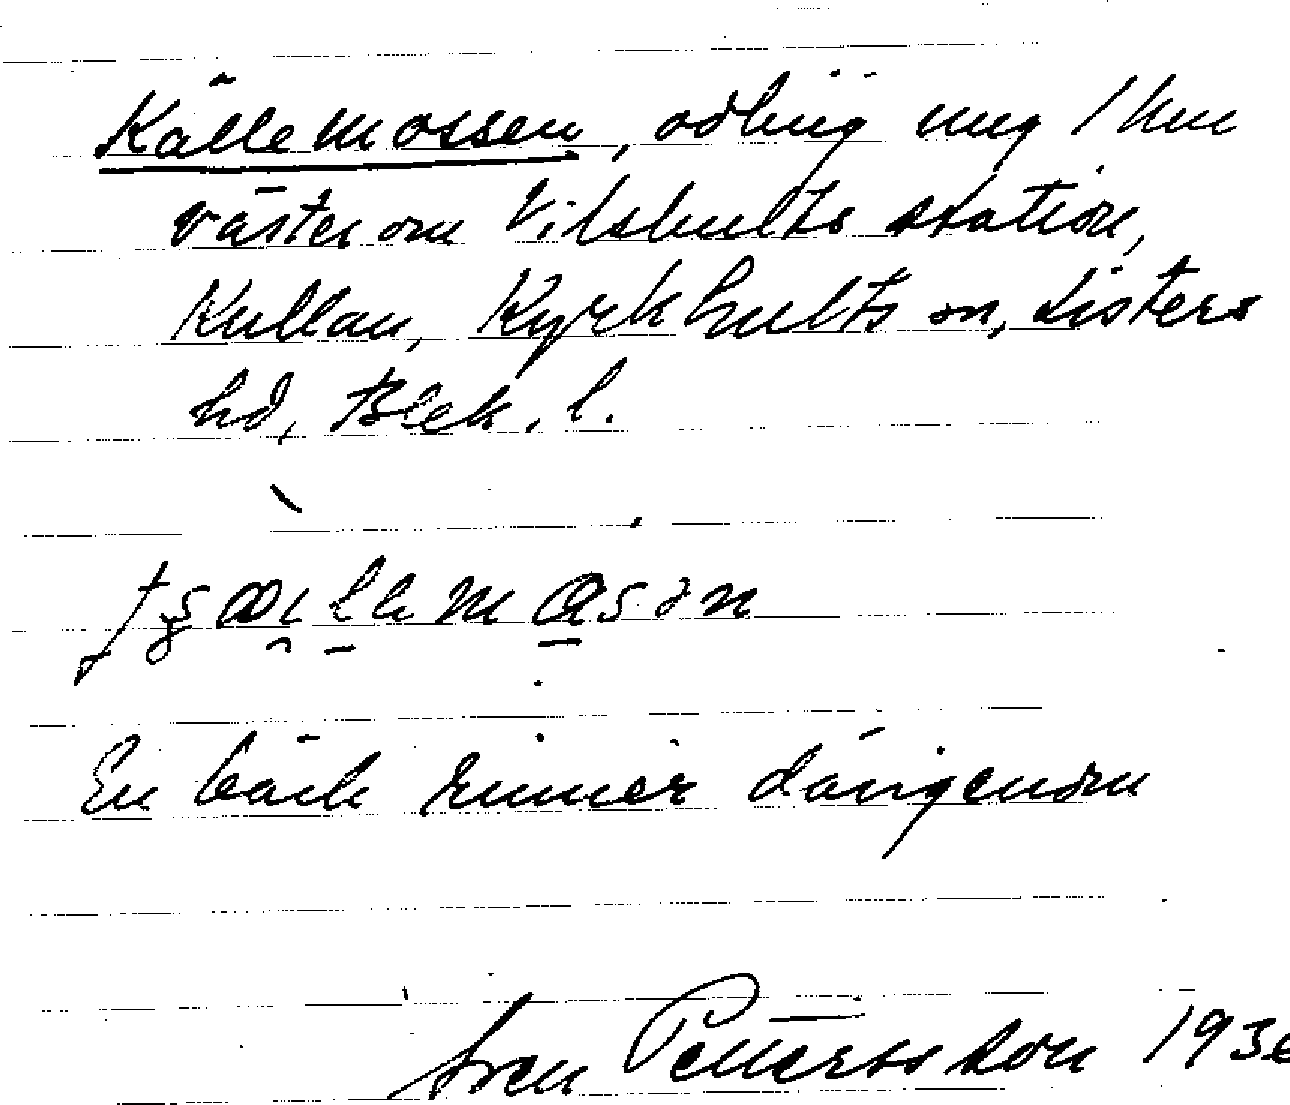 Källemossen, odling ung 1 km
väster om Vilshults station,
Kullan, Kyrkhults sn, Listers
hd, Blek. l.
En bäck rinner därigenom
Sven Pettersson